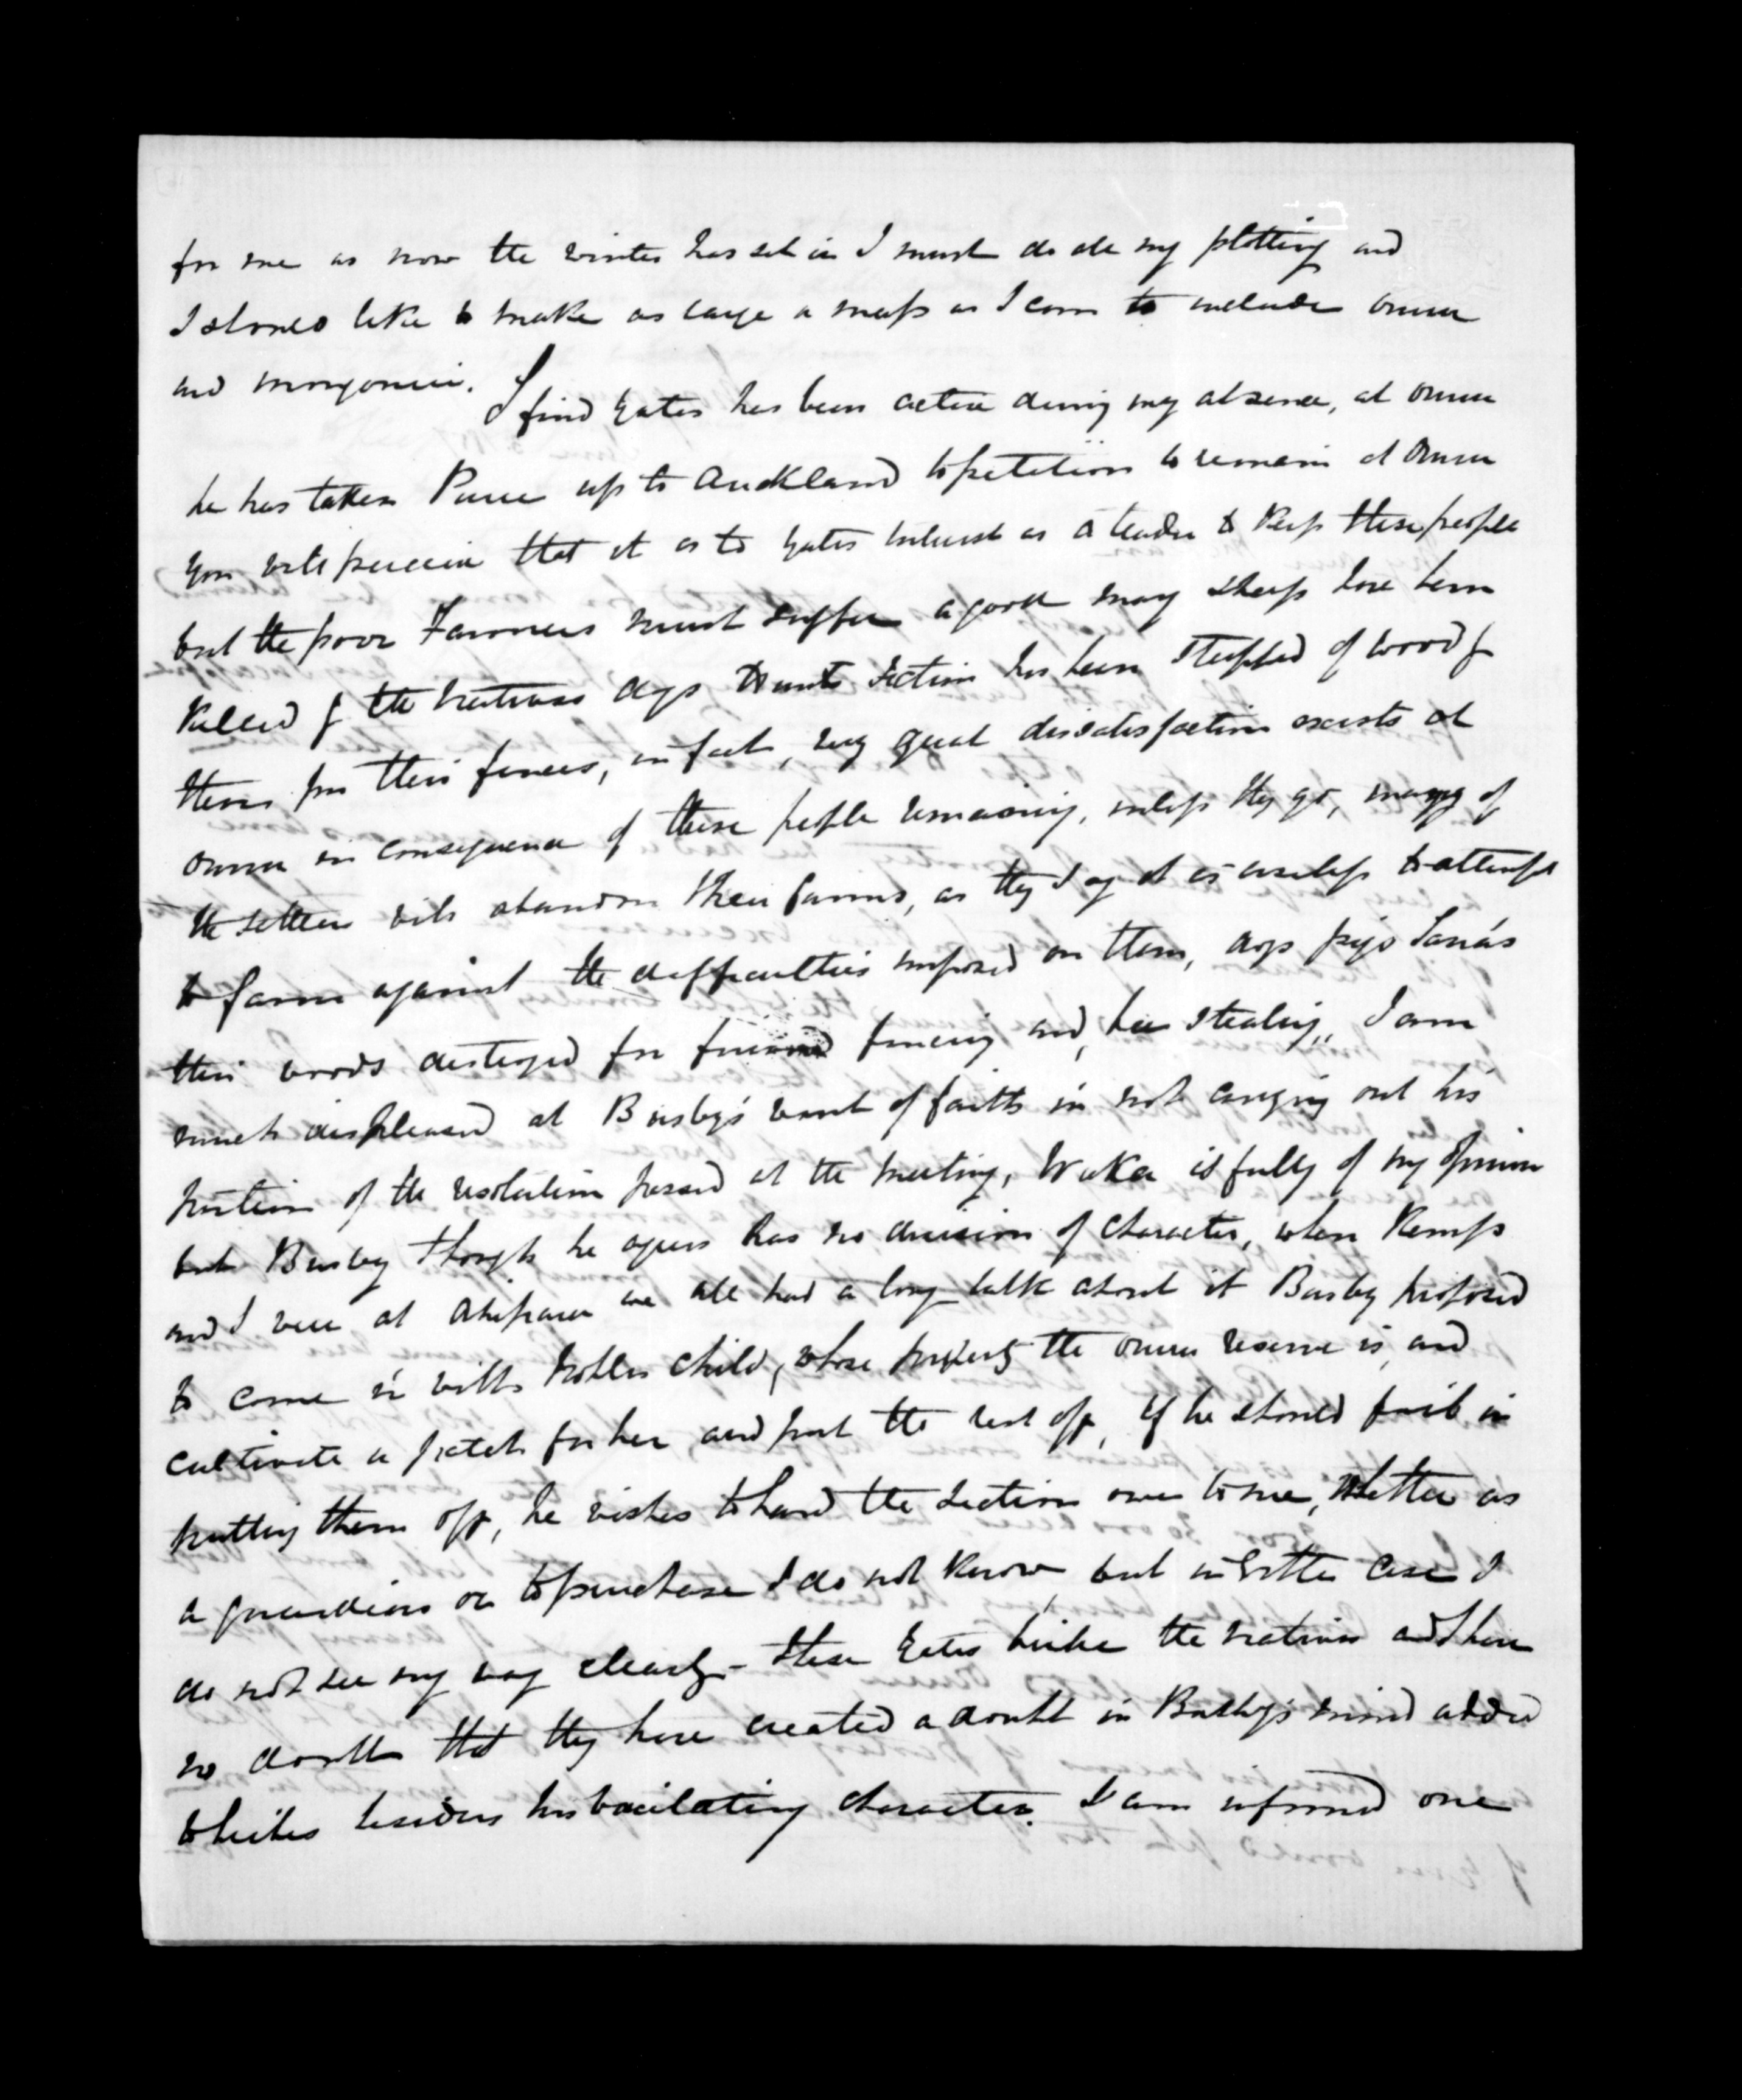 for me as now the winter has set in I must do all my plotting and
I should like to make as large a map as I can to include Oruru
and mongonui. I find Yates has been active during my absence, at Oruru
he has taken Puru up to Auckland to petition to remain at Oruru
you will perceive that it is to Yates interest as a trader to keep these people
but the poor Farmers must suffer a good many sheep have been
killed by the natives dogs section has been stripped of wood by
them for their fences, in fact, very great dissatisfaction exists at
Oruru in consequence of these people remaining, unless they go, many of
the settlers will abandon their farms, as they say it is useless to attempt
to farm against the difficulties imposed on them, dogs pigs
their woods destroyed for fencing and, stealing, I am
much displeased at Busby's want of faith in not carrying out his
portion of the resolution passed at the meeting, Waka is fully of my opinion
but Busby though he agrees has no decision of character, when Kemp
and I were at Ahipara we all had a long talk about it Busby proposed
to come in with child, whose property the Oruru reserve is, and
cultivate a patch for her, and put the rest off, if he should fail in
putting them off, he wishes to hand the section over to me, whether as
a guardian or to purchase I do not know, but in either case I
do not see my way clearly - these Yates bribe the natives and I have
no doubt that they have created a doubt in Busby's mind added
to besides his vacilating character. I am informed one